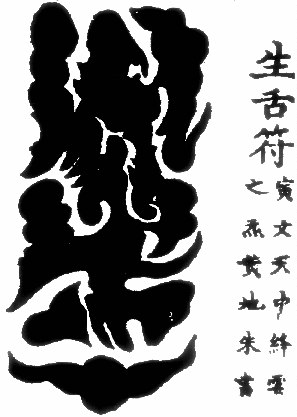 生舌符
寅文天中絳雲
之炁黄地朱書